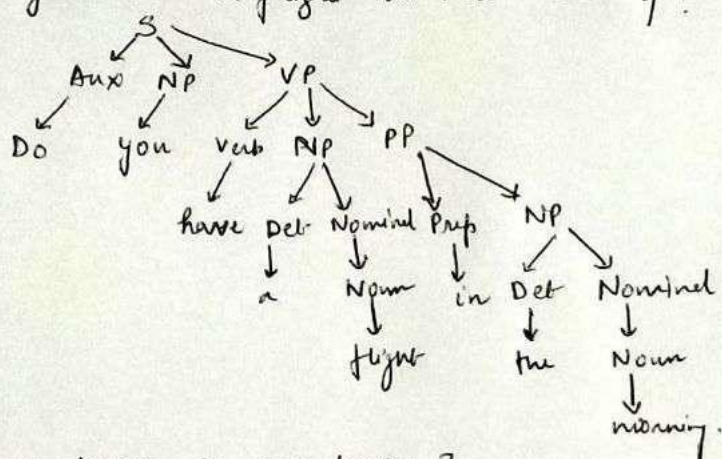 S
Aux NP VP
Do you Verb NP PP
have Det Nominal Prep NP
a Noun in Det Nominal
flight the Noun
morning.